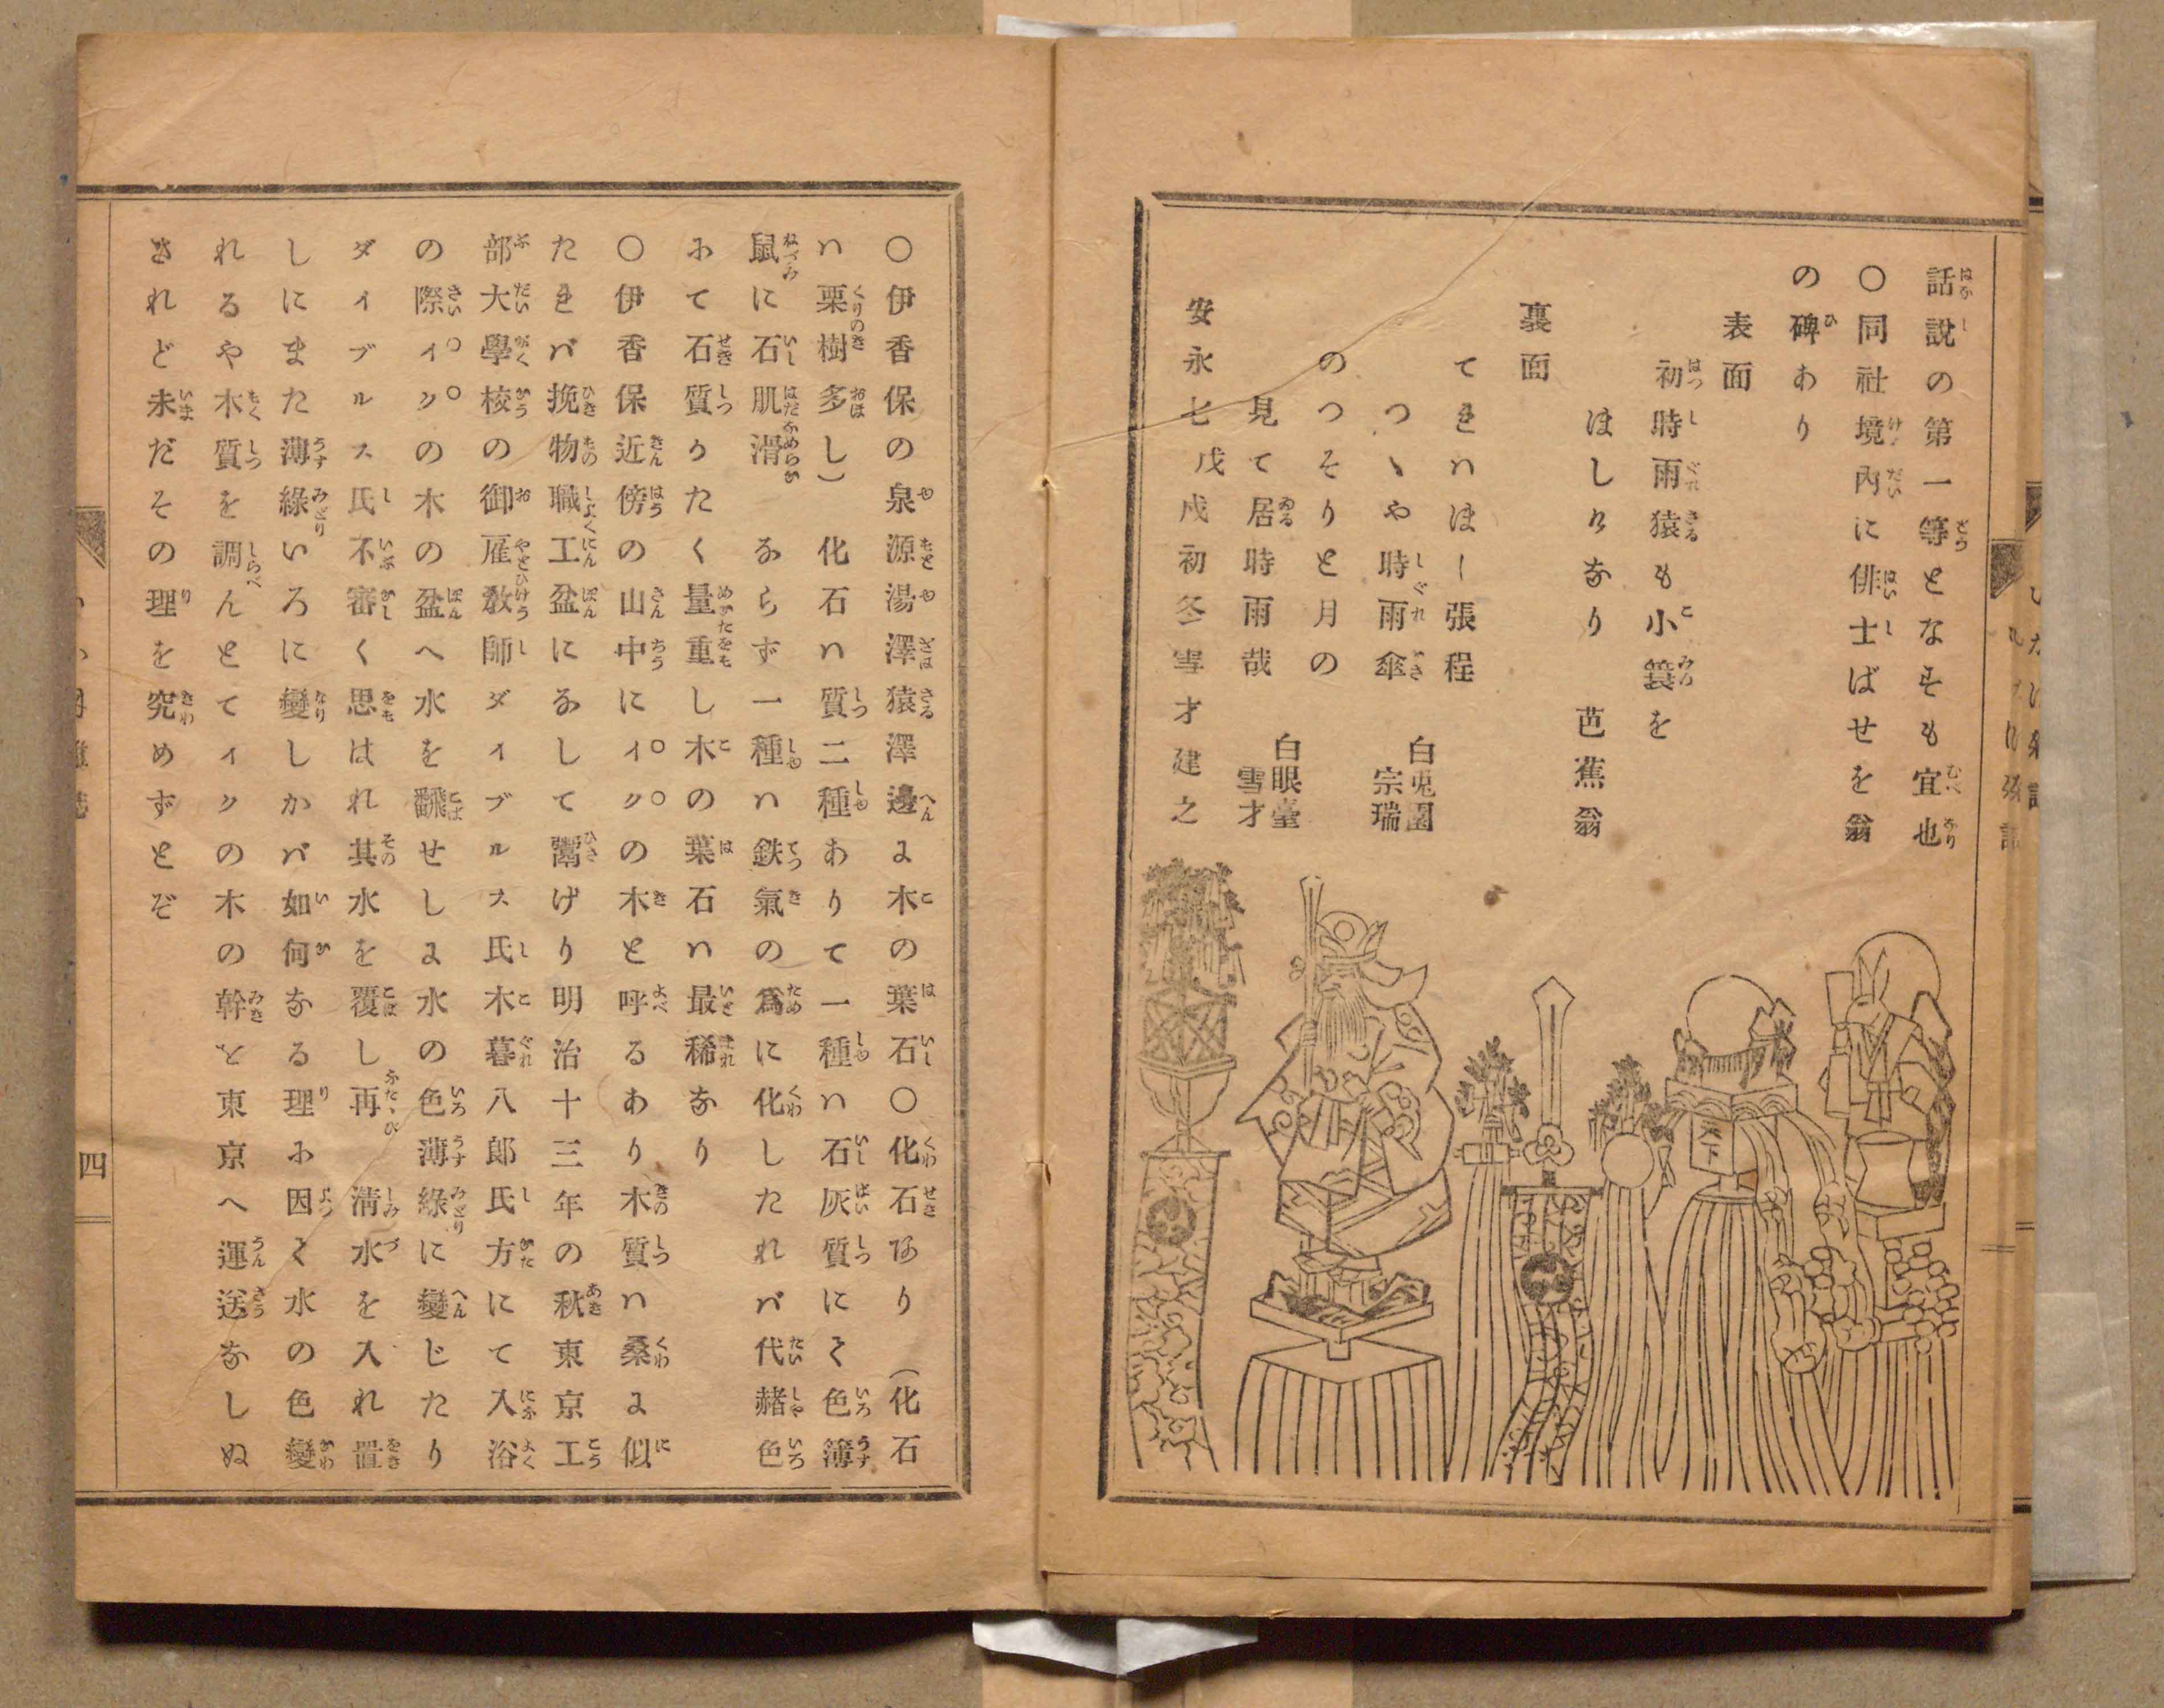 話説の第一等となそも宜也
〇同社境內に俳士ばせを翁
の碑あり
表面
初時雨猿も小簑を
はしけなり 芭蕉翁
裏面
てきハほー張程
つゝや時雨傘 白兎園宗瑞
のつそりと月の
見て居時雨哉 白眼臺雪才
安永七戊戌初冬雪才建之
天下
〇伊香保の泉源湯澤猿澤邊よ木の葉石〇化石あり(化石
ハ栗樹多し)化石ハ質二種ありて一種ハ石灰質にて色簿
鼠に石肌滑ならず一種ハ鉄氣の爲に化したれバ代赭色
にて石質かたく量重し木の葉石ハ最稀なり
〇伊香保近傍の山中にイクの木と呼るあり木質ハ桑よ似
たれバ挽物職工盆になして鬻げり明治十三年の秋東京工
部大學校の御雇敎師ダイブルス氏木暮八郎氏方にて入浴
の際イクの木の盆へ水を飜せしよ水の色薄綠に變じたり
ダイブルス氏不審く思はれ其水を覆し再淸水を入れ置
しにまた薄綠いろに變しかバ如何なる理に因て水の色變
れるや木質を調んとてイクの木の幹を東京へ運送なしぬ
されど未だその理を究めずとぞ
四